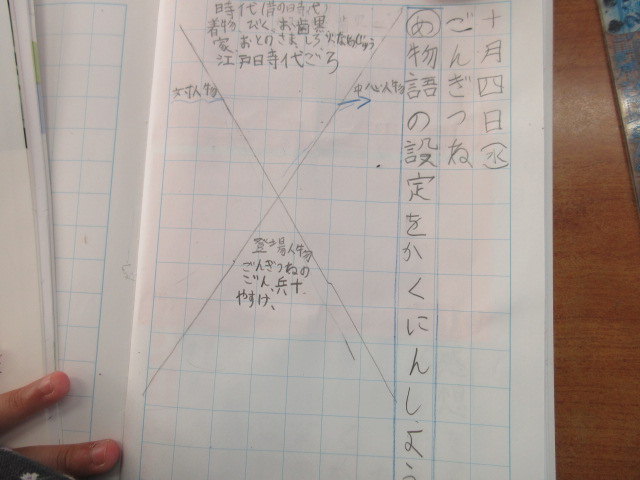 十月四日(水)
ごんぎつね
め 物語の設定をかくにんしよう
中心人物
時代(昔の時代)
着物、びく、お歯黒
家、おとのさま、しろ
江戸日時代ごろ
対人物
登場人物
ごんぎつねの
ごん、兵十、
やすけ、